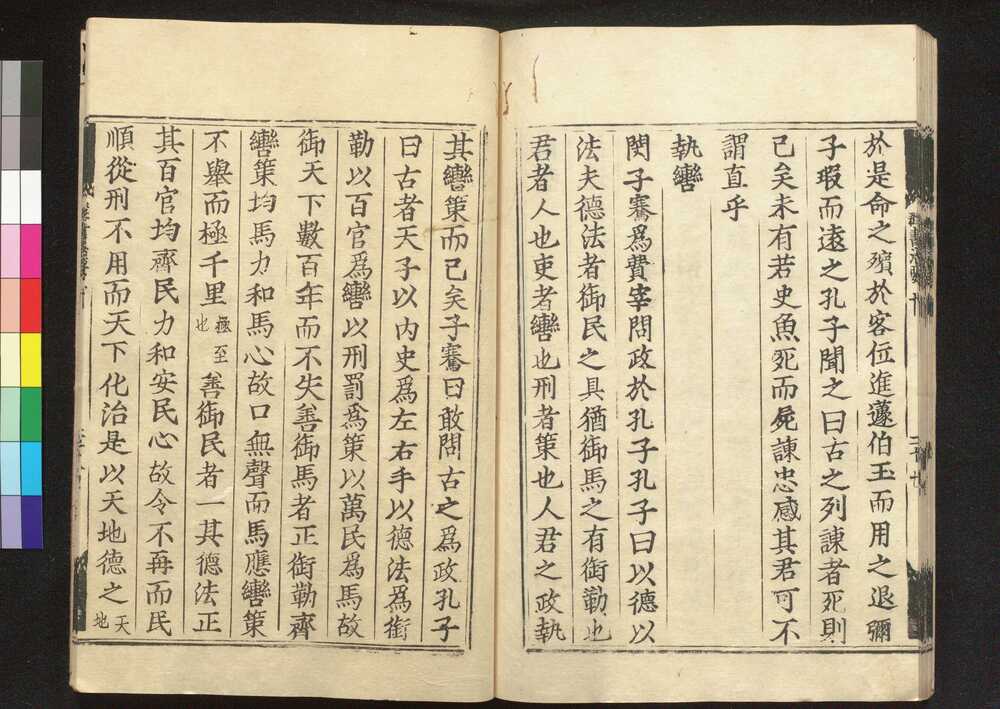 於是命之殯於客位進蘧伯玉而用之退彌
子瑕而遠之孔子聞之曰古之列諫者死則
已矣未有若史魚死而屍諫忠感其君可不
謂直乎
執轡
閔子騫爲費宰問政於孔子孔子曰以德以
法夫德法者御民之具猶御馬之有銜勒也
君者人也吏者轡也刑者策也人君之政執
其轡策而已矣子騫曰敢問古之爲政孔子
曰古者天子以內史爲左右手以德法爲銜
勒以百官爲轡以刑罰爲策以萬民爲馬故
御天下數百年而不失善御馬者正銜勒齊
轡策均馬力和馬心故口無聲而馬應轡策
不舉而極千里極至也善御民者一其德法正
其百官均齊民力和安民心故令不再而民
順從刑不用而天下化治是以天地德之天地